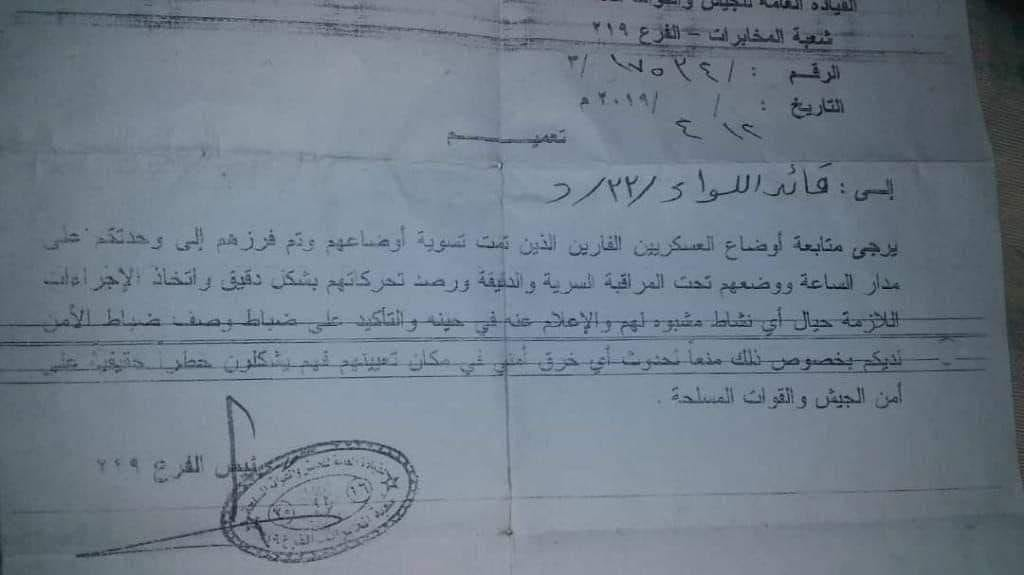 القيادة العامة للجيش والقوات
شعبة المخابرات - الفرع ٢١٩
الرقم : / ١٧٥٣٤ /٣
التاريخ : / /٢٠١٩ م
١٢ ٤
تعميـــــــم
إلى : قائد اللواء /٢٢/ د
يرجى متابعة أوضاع العسكريين الفارين الذين تمت تسوية أوضاعهم وتم فرزهم إلى وحدتكم على
مدار الساعة ووضعهم تحت المراقبة السرية والدقيقة ورصد تحركاتهم بشكل دقيق واتخاذ الإجراءات
اللازمة حيال أي نشاط مشبوه لهم والإعلام عنه في حينه والتأكيد على ضباط وصف ضباط الأمن
لديكم بخصوص ذلك منعاً لحدوث أي خرق أمني في مكان تعيينهم فهم يشكلون خطراً حقيقياً على
أمن الجيش والقوات المسلحة .
رئيس الفرع ٢٢٩